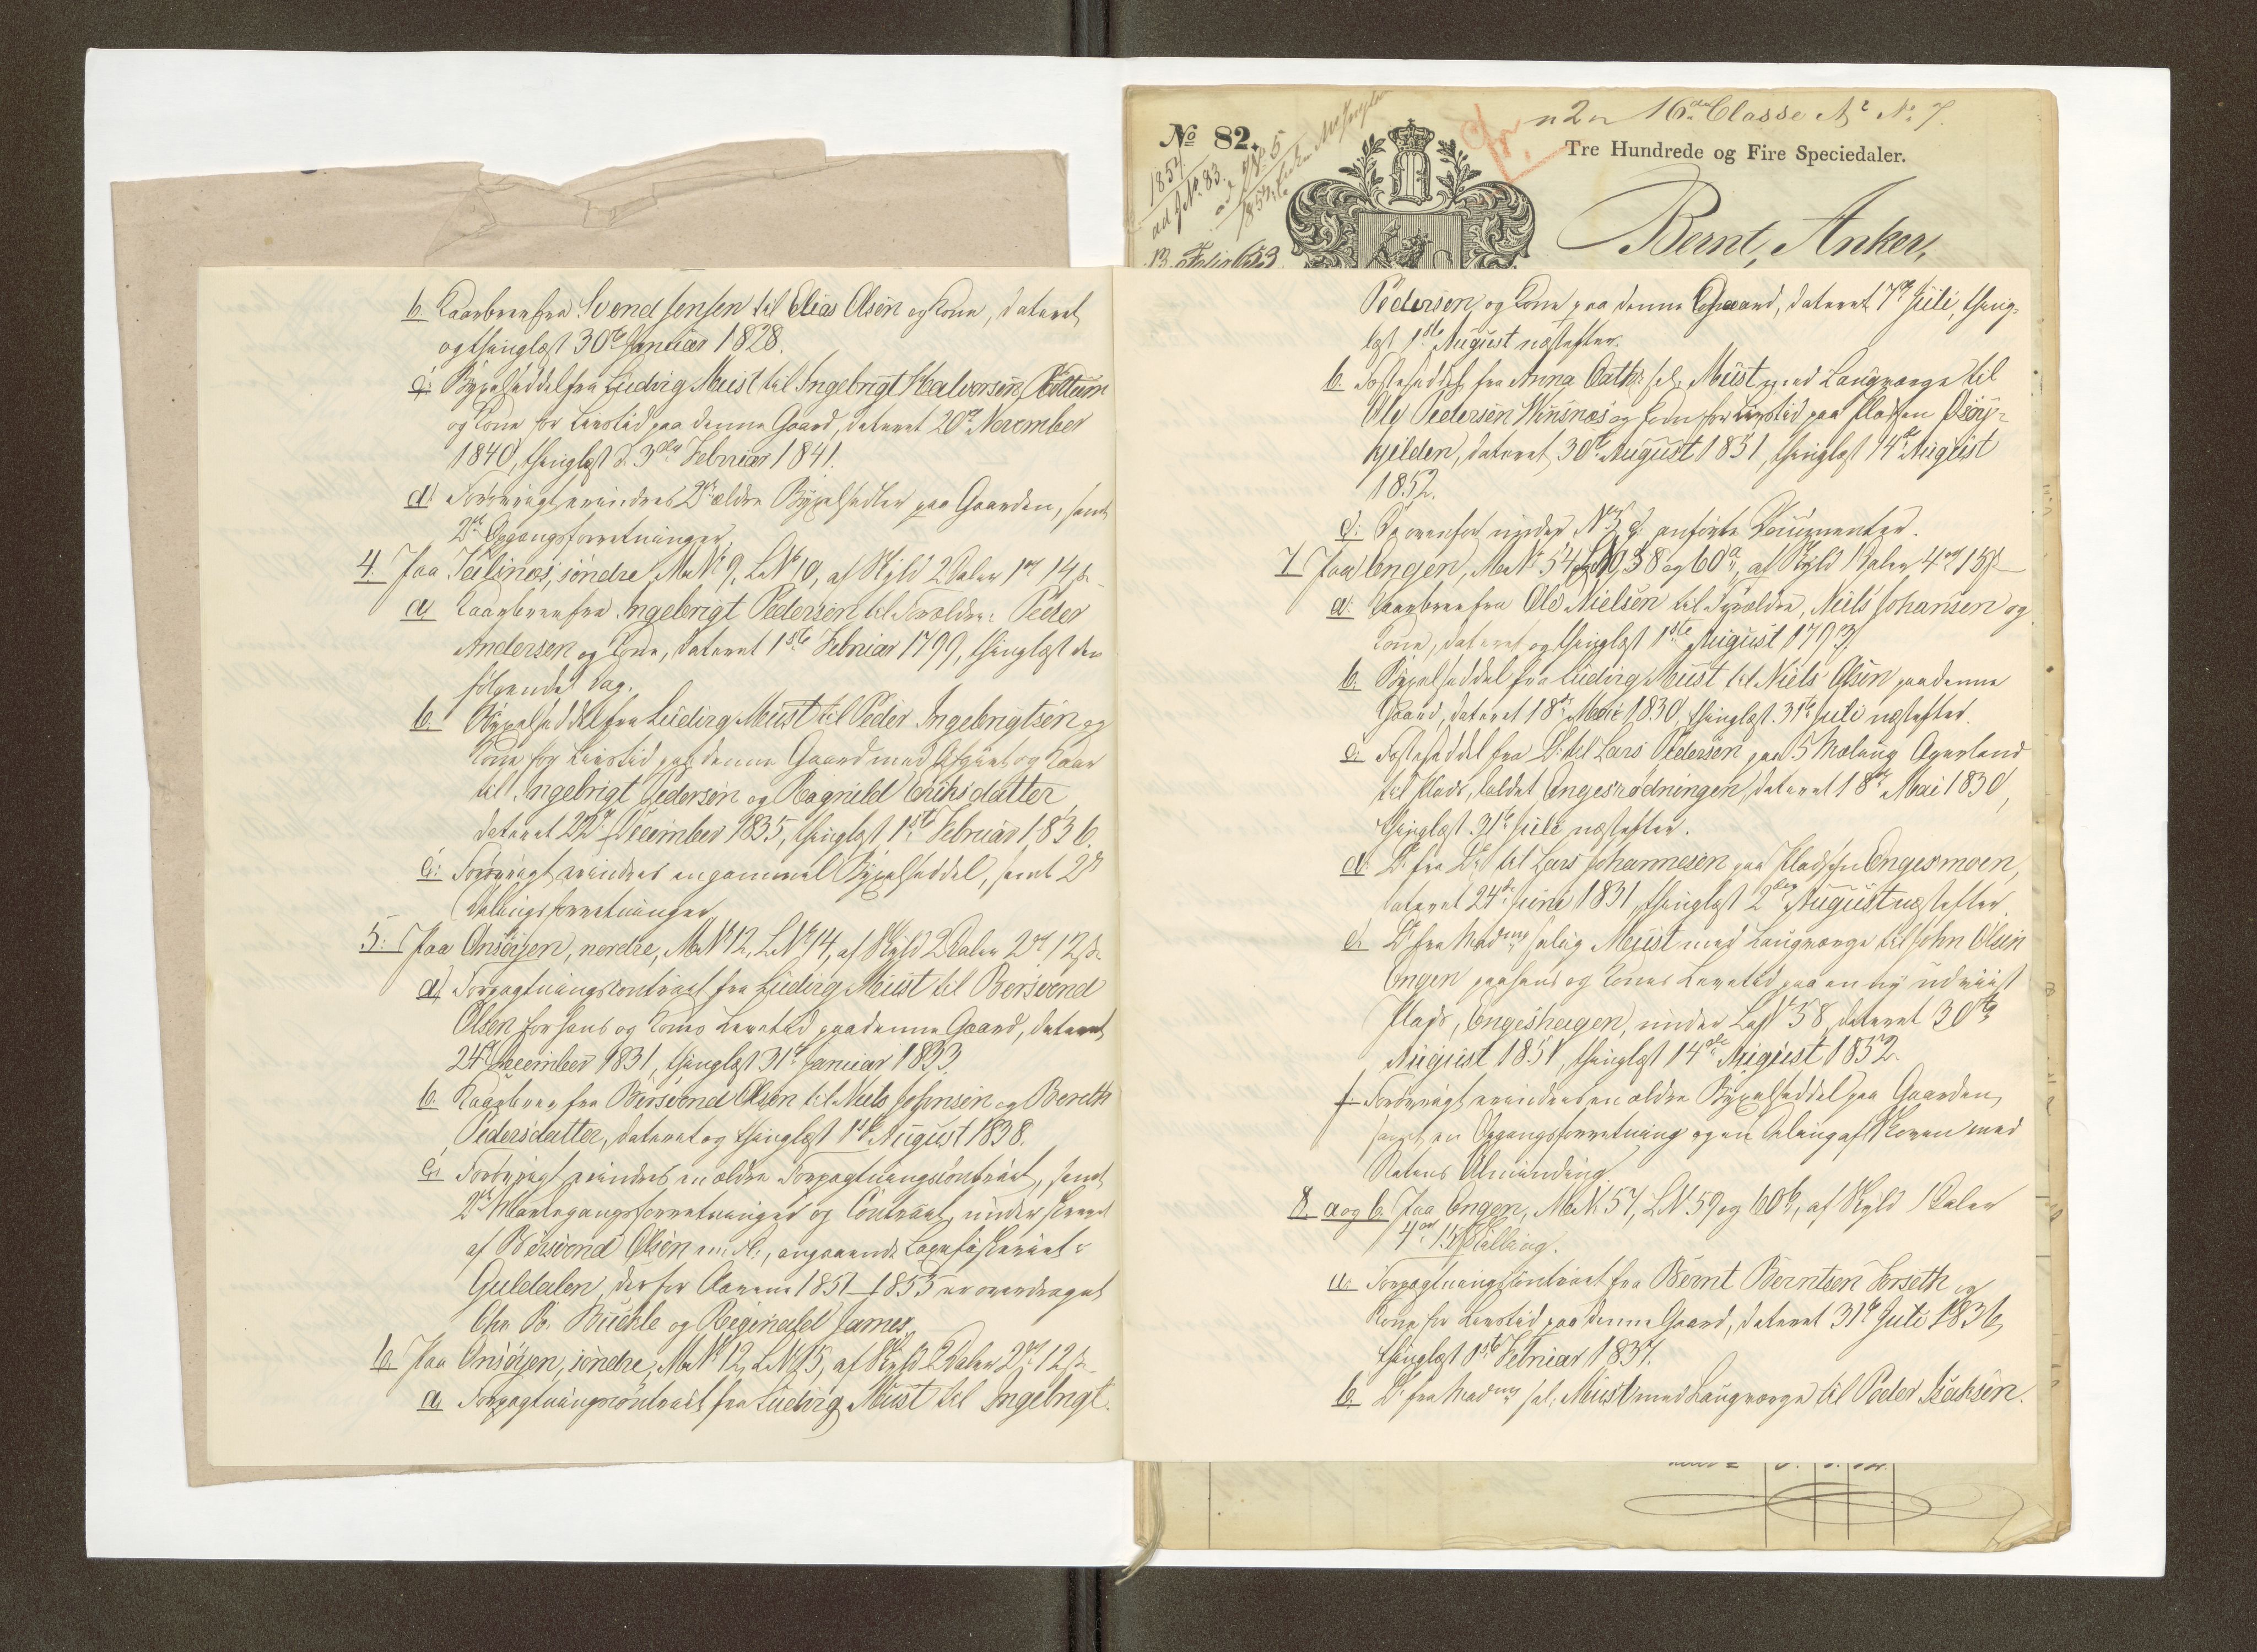 b. Kaarbrev fra Svend Jensen til Elias Olsen og Kone, dateret
og thinglæst 30te Januar 1828.
c: Bygselseddel fra Ludvig Must til Ingebrigt Halvorsen
og Kone for Levetid paa denne Gaard, dateret 20de November
1840, thinglæst d. 3die Februar 1841.
d: Forøvrigt erindres 2de ældre Bygselsedler paa Gaarden, samt
2de Opgangsforretninger.
4. Paa søndre, M No 9, L No 10, af Skyld 2 Daler 1 ort 14 s.
a, Kaarbrev fra Ingebrigt Pedersen til Forældre: Peder
Andersen og Kone, dateret 1ste Februar 1799, thinglæst den
følgende Dag.
b. Bygselseddel fra Ludvig Must til Peder Ingebrigtsen og
Kone for Levetid paa denne Gaard med og Kaar
til Ingebrigt Pedersen og Ragnild Eriksdatter,
dateret 22de December 1835, thinglæst 1ste Februar 1836.
c: Forøvrigt erindres en gammel Bygselseddel, samt 2de
Delingsforretninger.
5: Paa Onsøyen, nordre, M No 12, L No 14, af Skyld 2 Daler 2 ort 12 s.
a, Forpagtningscontract fra Ludvig Must til Bersvend
Olsen for hans og Kones Levetid paa denne Gaard, dateret
24de December 1831, thinglæst 31te Januar 1833.
b. Kaarbrev fra Bersvend Olsen til Niels Johnsen og Bereth
Pedersdatter, dateret og thinglæst 1ste August 1838.
c: Forøvrigt erindres en ældre Forpagtningscontract, samt
2de Markegangsforretninger og Contract, under
af Bersvend Olsen m. Fl., angaaende Laxefiskeriet i
Guldalen, der for Aarene 1851-1855 er overdraget
Chr. B. Buchle og Reginald James.
6. Paa Onsøyen, søndre, M No 12, L No 15, af Skyld 2 Daler 2 ort 12 s.
a, Forpagtningscontract fra Ludvig Must til Ingebrigt
No 82.
n 2 n 16de Classe No 7.
Tre Hundrede og Fire Speciedaler.
1854
ad J No 83.
Bernt, Anker,
13 Folio 653
Pedersen og Kone paa denne Gaard, dateret 7de Juli, thing-
læst 1ste August næstefter.
b. Festeseddel fra Anna Cath: sal. Must med Laugværge til
Ole Pedersen og Kone for Levetid paa Pladsen
kjelden, dateret 30te August 1851, thinglæst 14de August
1852.
c: De ovenfor under No 5, c, anførte Documenter.
7. Paa Engen, M No 54, L No 58 og 60a, af Skyld 1 Daler 4 ort 15 s.
a: Kaarbrev fra Ole Nielsen til Forældre, Niels Johansen og
Kone, dateret og thinglæst 1ste August 1793.
b. Bygselseddel fra Ludvig Must til Niels Olsen paa denne
Gaard, dateret 18de Mai 1830, thinglæst 31te Juli næstefter.
c: Festeseddel fra Do til Lars Pedersen paa 5 Mæling Agerland
til Plads, kaldet Engesrødningen, dateret 18de Mai 1830,
thinglæst 31te Juli næstefter.
d: Do fra Do til Lars Johannesen paa Pladsen Engesmoen,
dateret 24de Juni 1831, thinglæst 2den August næstefter.
e. Do fra Madme salig Must med Laugværge til John Olsen
Engen paa hans og Kones Levetid paa en ny udviist
Plads, Engeshagen, under L No 58, dateret 30te
August 1851, thinglæst 14de August 1852.
f. Forøvrigt erindres en ældre Bygselseddel paa Gaarden,
samt en Opgangsforretning og en Deling af Skoven med
Statens Alminding.
8. a og b. Paa Engen, M No 54, L No 59 og 60b, af Skyld 1 Daler
4 ort 15 Skilling.
a. Forpagtningscontract fra Bernt Berntsen Forseth og
Kone for Levetid paa denne Gaard, dateret 31te Juli 1836,
thinglæst 1ste Februar 1837.
b. Do fra Madme sal. Must med Laugværge til Peder Isaksen.